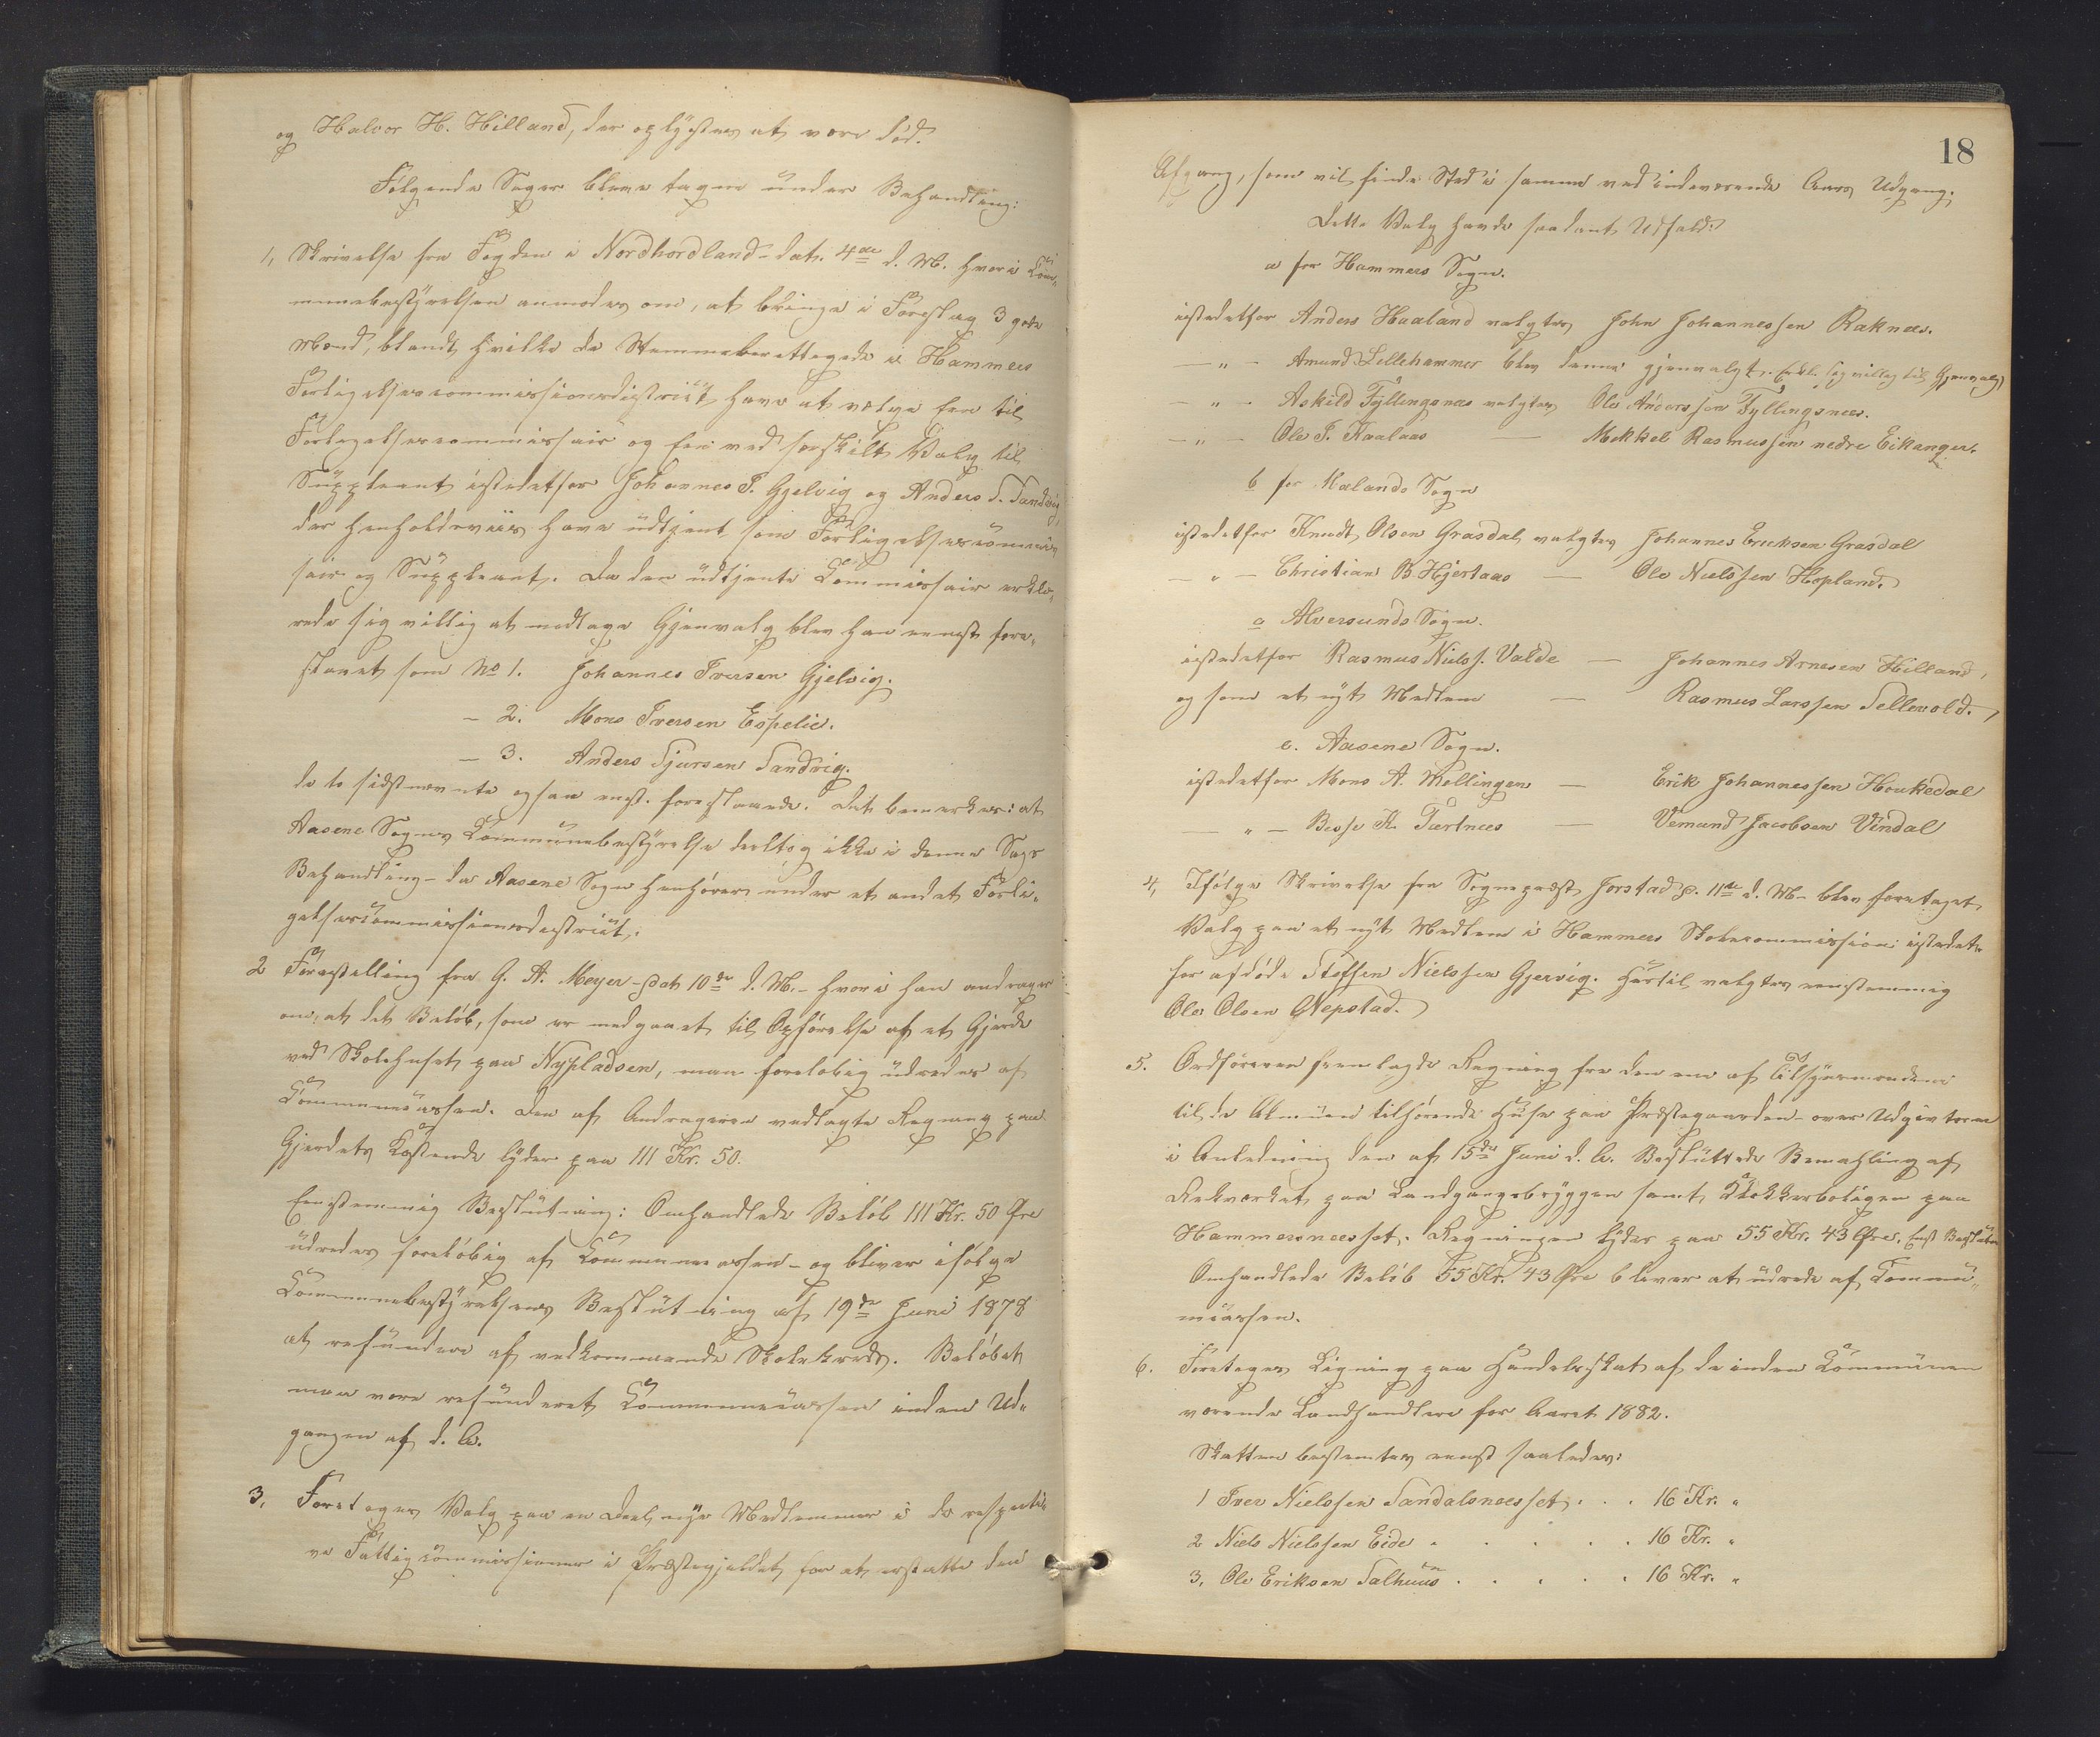 og Halvor H. Hilland, der oplystes at være død.
Følgende Sager bleve tagne under Behandling:
1, Skrivelse fra Fogden i Nordhordland - dat. 4de d. M. hvori Kom-
munebestyrelsen anmodes om, at bringe i Forslag 3 gode
Mænd, blandt hvilke de Stemmeberettigede i Hammers
Forligelsescommissionsdistrict have at vælge een til
Forligelsescommissair og een ved særskilt Valg til
Suppleant istedetfor Johannes I. Gjelvig og Anders S. Sandvig,
der henholdsviis have udtjent som Forligelsescommis-
sair og Suppleant. Da den udtjente Commissair erklæ-
rede sig villig at modtage Gjenvalg blev han eenst. fore-
slaaet som No 1. Johannes Iversen Gjelvig.
- 2. Mons Iversen Espelie.
- 3. Anders Sjursen Sandvig.
de to sidstnævnte ogsaa enst. foreslaaede. Det bemærkes: at
Aasene Sogns Kommunebestyrelse deeltog ikke i denne Sags
Behandling - da Aasene Sogn henhører under et andet Forli-
gelsescommissionsdistrict.
2 Forestilling fra G. A. Meyer - dat 10de d. M. - hvori han andrager
om, at det Beløb, som er medgaaet til Opførelse af et Gjerde
ved Skolehuset paa Nypladsen, maa foreløbig udredes af
Kommunecassen. Den af Andrageren vedlagte Regning paa
Gjerdets Kostende lyder paa 111 Kr. 50.
Eenstemmig Beslutning: Omhandlede Beløb 111 Kr. 50 Øre
udredes foreløbig af Kommunecassen - og bliver ifølge
Kommunebestyrelsens Beslutning af 19de Juni 1878
at refundere af vedkommende Skolekreds. Beløbet
maa være refunderet Kommunecassen inden Ud-
gangen af d. A.
3, Foretoges Valg paa en Deel nye Medlemmer i de respecti-
ve Fattigcommissioner i Præstegjeldet for at erstatte den
18
Afgang, som vil finde Sted i samme ved indeværende Aars Udgang.
Dette Valg havde saadant Udfald:
a for Hammers Sogn.
istedetfor Anders Haaland valgtes John Johannessen Raknæs.
— " — Amund Lillehammer blev denne gjenvalgt. Erkl. sig villig til Gjenvalg)
— " — Askild Fyllingsnæs valgtes Ole Anderssen Fyllingsnæs.
— " — Ole T. Kaalaas — Mekkel Rasmussen nedre Eikanger.
b for Mælands Sogn
istedetfor Knudt Olsen Grasdal valgtes Johannes Erichsen Grasdal
— " — Christian B. Hjertaas — Ole Nielssen Hopland.
c Alversunds Sogn.
istedetfor Rasmus Nielss. Valde — Johannes Arnesen Hilland,
og som et nyt Medlem — Rasmus Larssen Tellevold.
e. Aasene Sogn.
istedetfor Mons A. Mollingen — Erik Johannessen Houkedal
— " — Besse K. Tærtnæs — Vemund Jacobsen Vindal
4, Ifølge Skrivelse fra Sognepræst Jorstad p. 11te d. M. - blev foretaget
Valg paa et nyt Medlem i Hammers Skolecommission istedet-
for afdøde Steffen Nielssen Gjervig. Hertil valgtes eenstemmig
Ole Olsen Nepstad.
5. Ordføreren fremlagde Regning fra den ene af Tilsynsmændene
til de Almuen tilhørende Huse paa Præstegaarden - over Udgivterne
i Anledning den af 15de Juni d. A. Besluttede Bemahling af
Rekværket paa Landgangsbryggen samt Klokkerboligen paa
Hammersnæsset. Regningen lyder paa 55 Kr. 43 Øre. Enst Beslutn
Omhandlede Beløb 55 Kr. 43 Øre bliver at udrede af Kommu-
necassen.
6. Foretoges Ligning paa Handelsskat af de inden Kommunen
værende Landhandlere for Aaret 1882.
Skatten bestemtes eenst saaledes:
1 Iver Nielssen Sandalsnæsset . . . 16 Kr. "
2 Niels Nielssen Eide . . . . . 16 Kr. "
3, Ole Eriksen Salhuus . . . . . 16 Kr. "